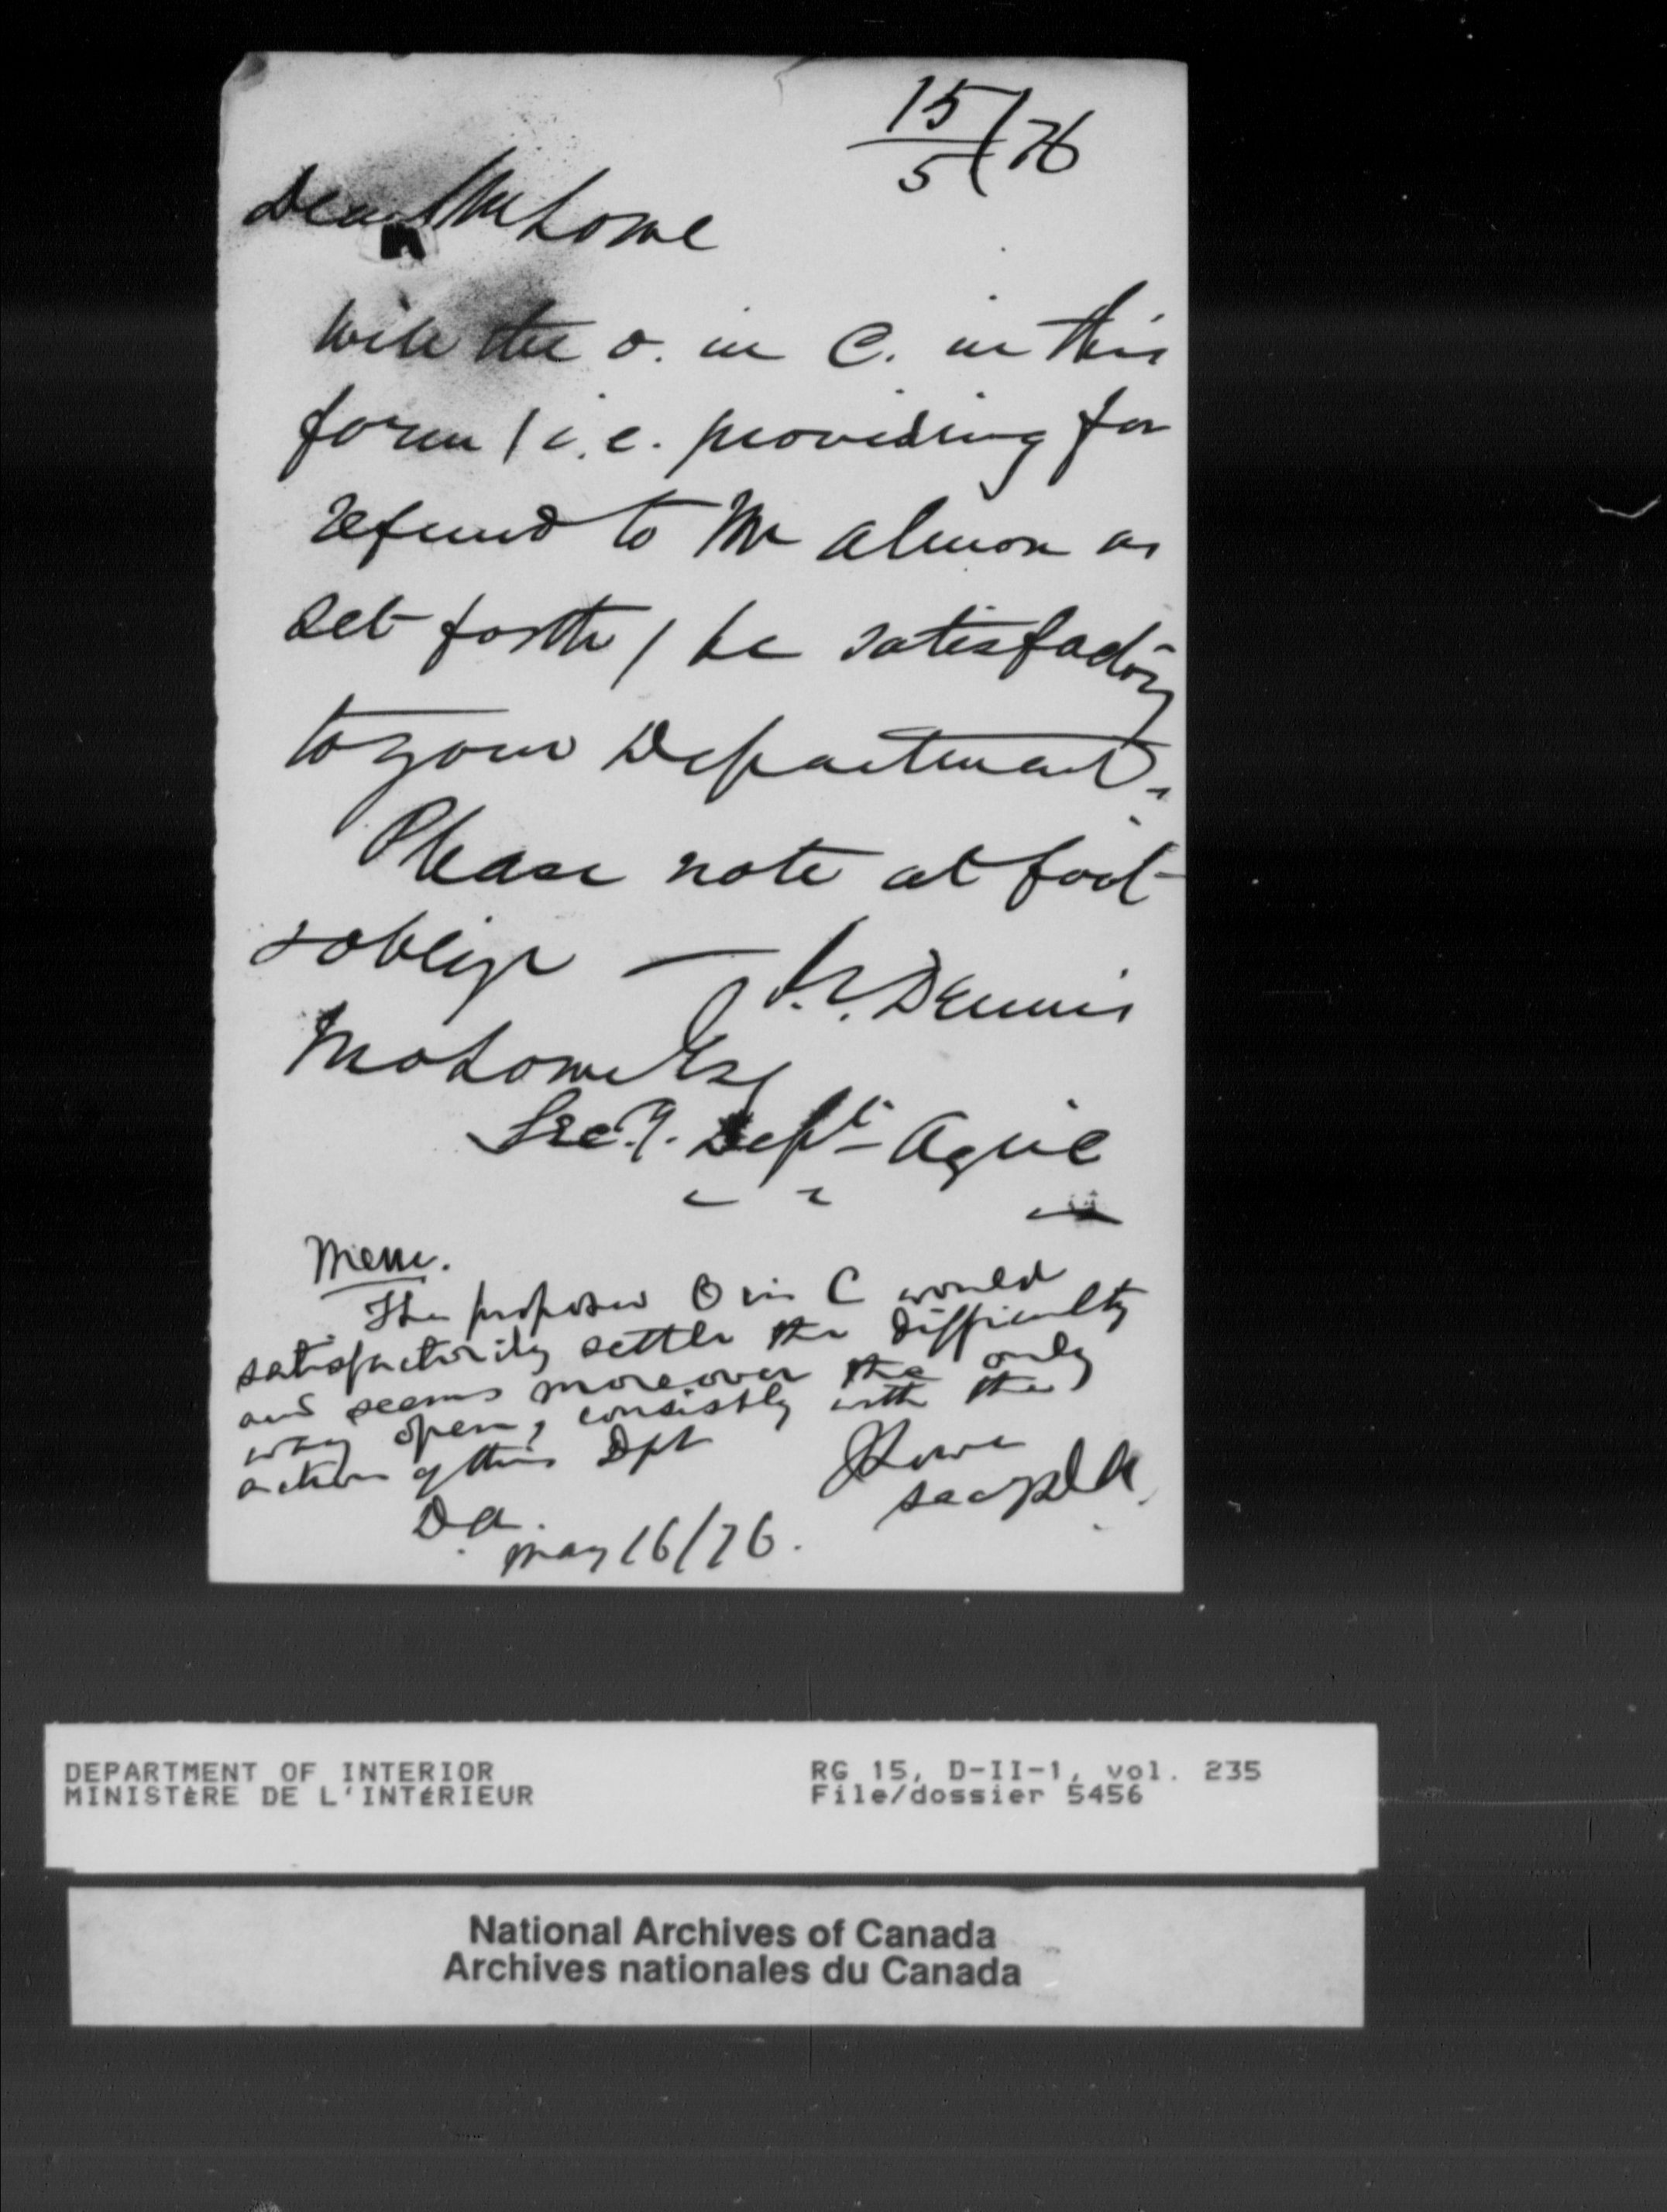 15/5/76
Dear Mr Lowe
Will the O. in C. in this
form / i.e. providing for
refund to Mr Almon as
set forth / be satisfactory
to your Department.
Please note at foot
& oblige — J.S. Dennis
Lowe Esq
Secy. Dept Agric
Mem.
The proposed O in C would
satisfactorily settle the difficulty
and seems moreover the only
way open, consistly with the
action of this Dpt
J Lowe
Secy DA.
D.A.
May 16/76.
DEPARTMENT OF INTERIOR
MINISTÈRE DE L'INTÉRIEUR
RG 15, D-II-1, vol. 235
File/dossier 5456
National Archives of Canada
Archives nationales du Canada